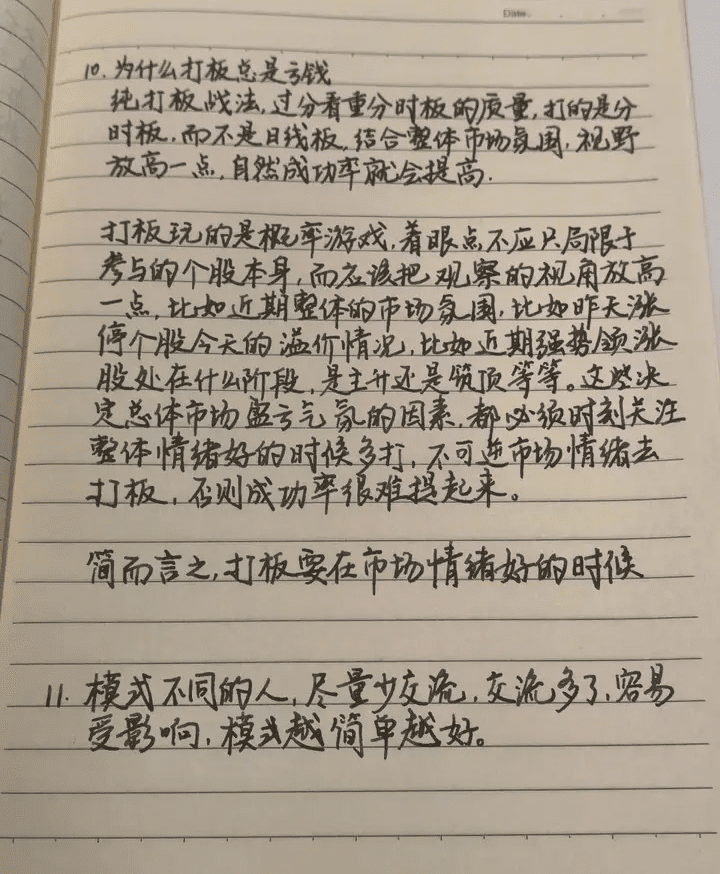 Date.
10. 为什么打板总是亏钱
纯打板战法,过分看重分时板的质量,打的是分
时板,而不是日线板,结合整体市场氛围,视野
放高一点,自然成功率就会提高.
打板玩的是概率游戏,着眼点不应只局限于
参与的个股本身,而应该把观察的视角放高
一点,比如近期整体的市场氛围,比如昨天涨
停个股今天的溢价情况,比如近期强势领涨
股处在什么阶段,是主升还是筑顶等等。这些决
定总体市场盈亏气氛的因素,都必须时刻关注
整体情绪好的时候多打,不可逆市场情绪去
打板,否则成功率很难提起来。
简而言之,打板要在市场情绪好的时候
11. 模式不同的人,尽量少交流,交流多了,容易
受影响,模式越简单越好。